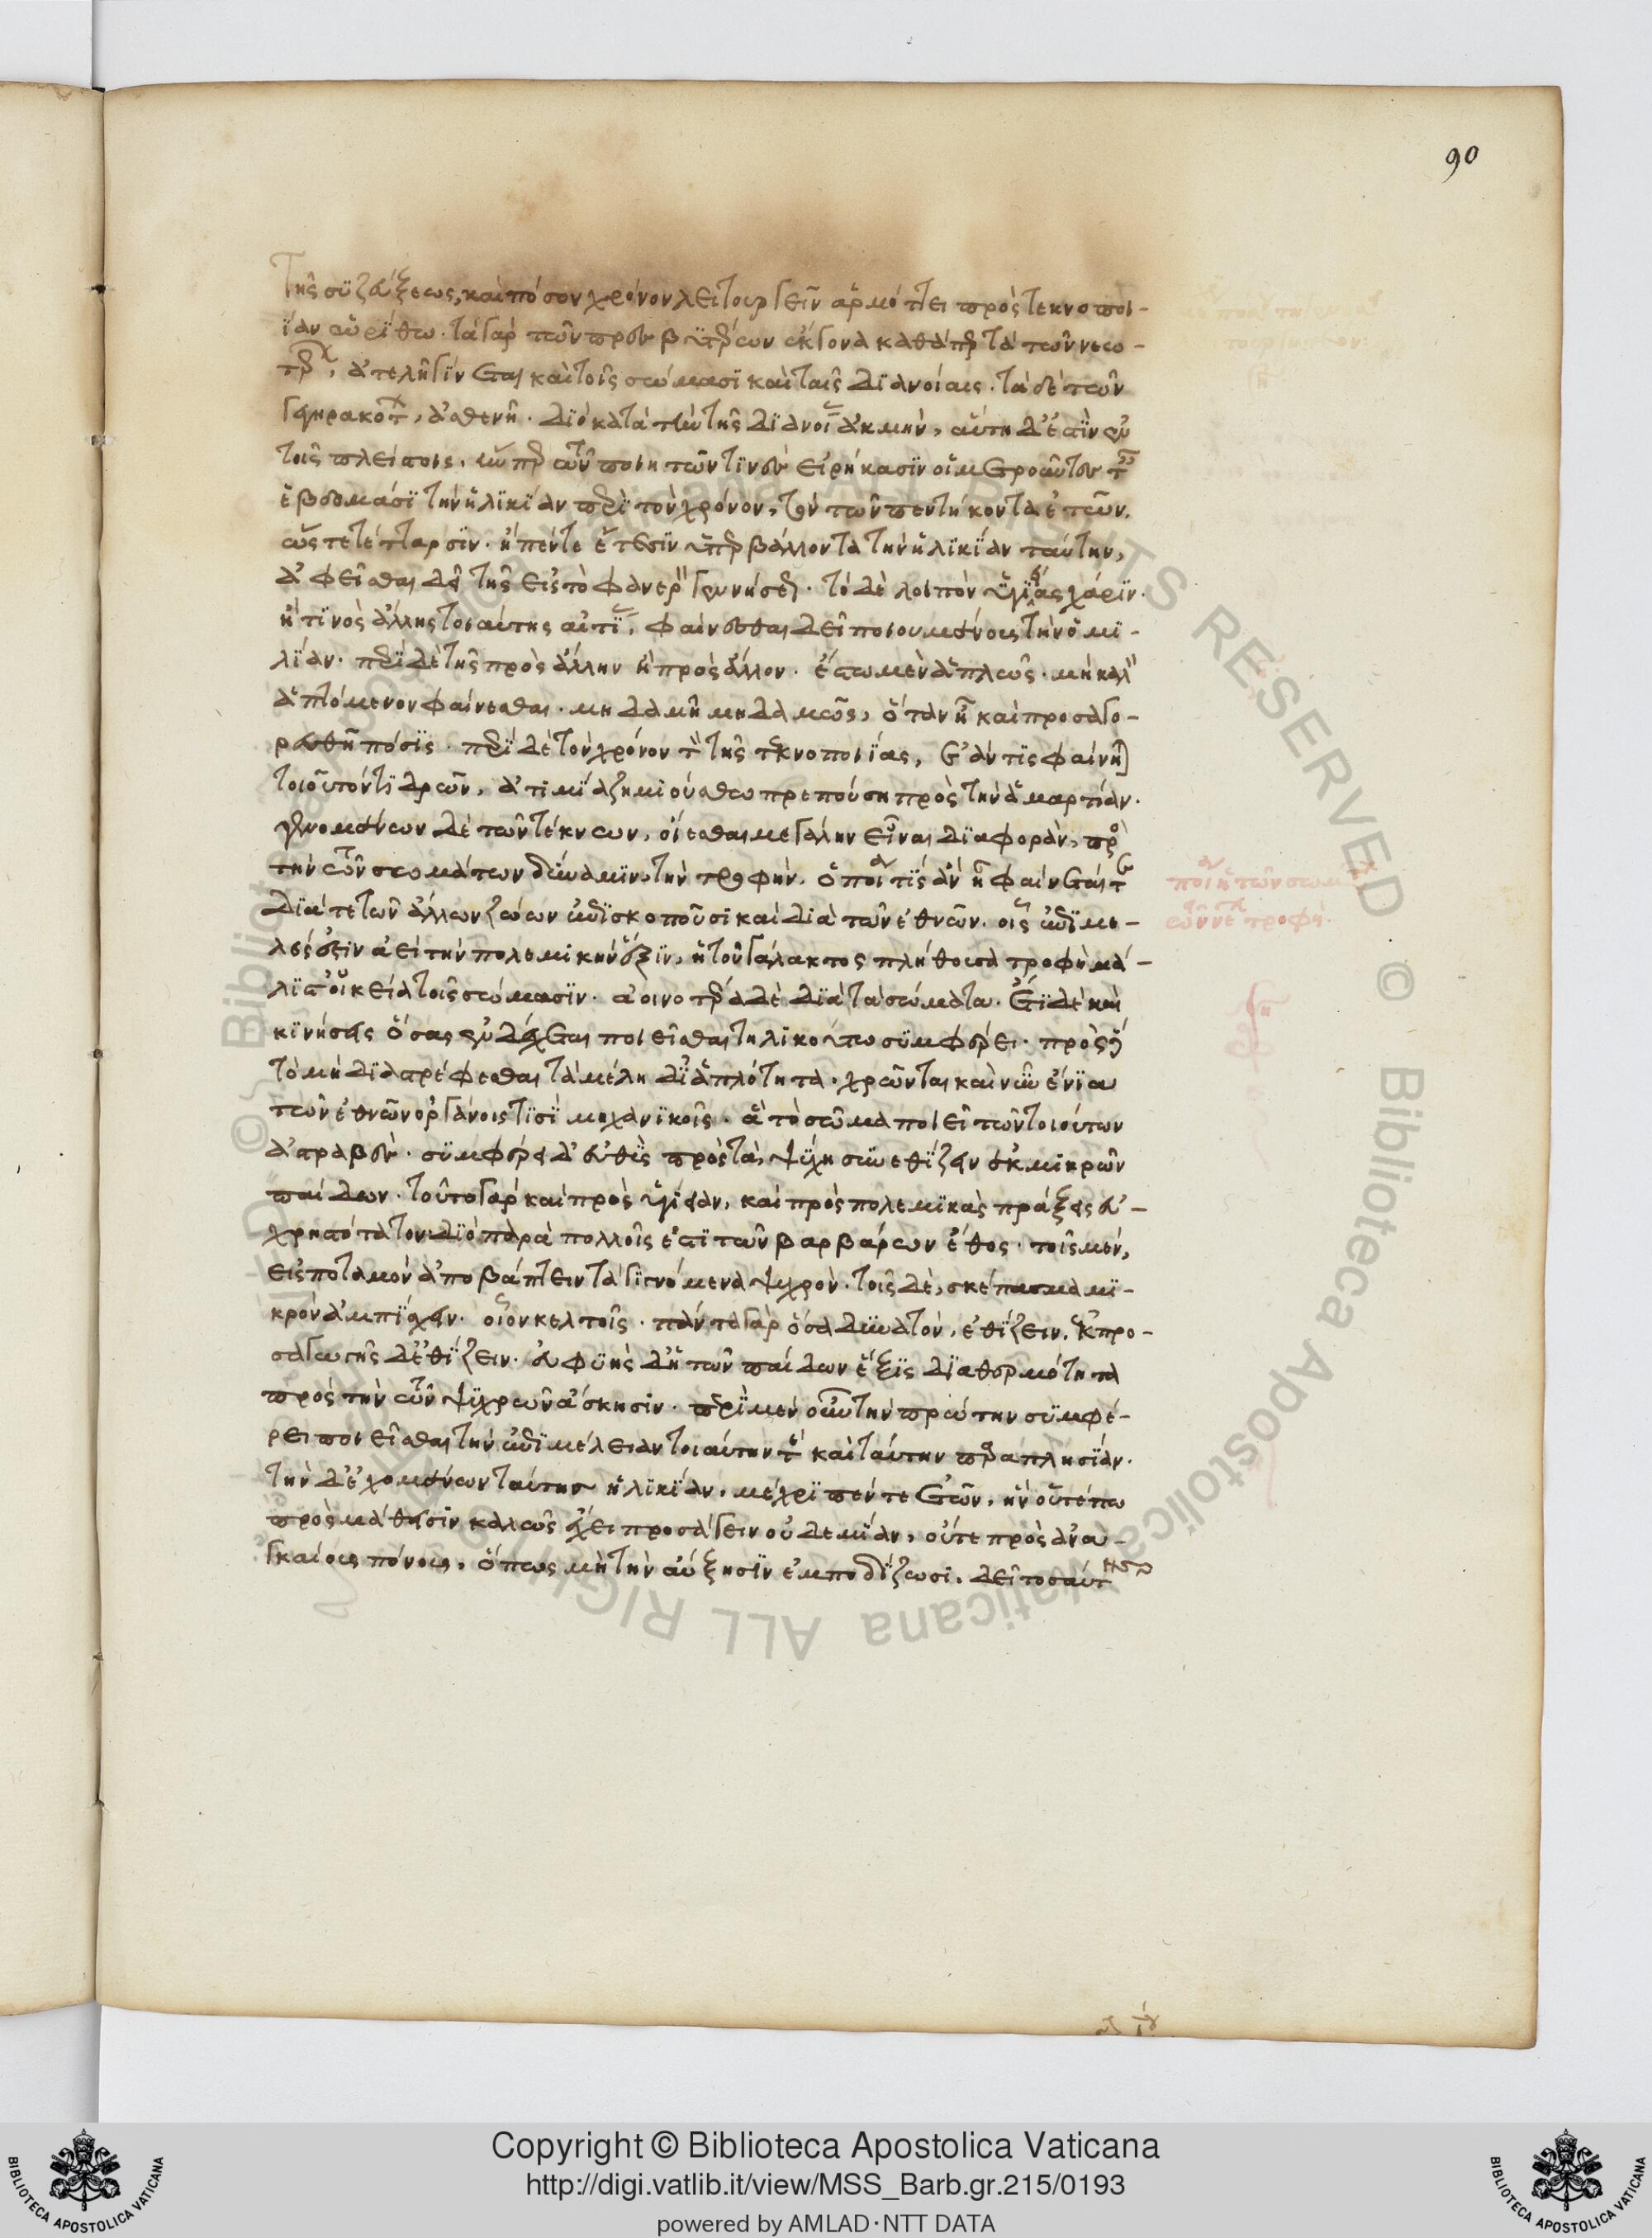 90
τῆς συζεύξεως, καὶ πόσον χρόνον λειτουργεῖν ἁρμόττει πρὸς τεκνοποι-
ίαν ὡρίσθω. τὰ γὰρ τῶν πρεσβυτέρων ἔκγονα καθάπερ τὰ τῶν νεω-
τέρων, ἀτελῆ γίνεται καὶ τοῖς σώμασι καὶ ταῖς διανοίαις. τὰ δὲ τῶν
γεγηρακότων, ἀσθενῆ. διὸ κατὰ τὴν τῆς διανοίας ἀκμήν, αὕτη δ' ἐστὶν ἐν
τοῖς πλείστοις, ἥνπερ τῶν ποιητῶν τινὲς εἰρήκασιν οἱ μετροῦντες ταῖς
ἑβδομάσι τὴν ἡλικίαν περὶ τὸν χρόνον, τὸν τῶν πεντήκοντα ἐτῶν.
ὥστε τέτταρσιν ἢ πέντε ἔτεσιν ὑπερβάλλοντα τὴν ἡλικίαν ταύτην,
ἀφεῖσθαι δεῖ τῆς εἰς τὸ φανερὸν γεννήσεως. τὸ δὲ λοιπὸν ὑγιείας χάριν
ἤ τινος ἄλλης τοιαύτης αἰτίας, φαίνεσθαι δεῖ ποιουμένους τὴν ὁμι-
λίαν. περὶ δὲ τῆς πρὸς ἄλλην ἢ πρὸς ἄλλον. ἔστω μὲν ἁπλῶς μὴ καλὸν
ἁπτόμενον φαίνεσθαι μηδαμῇ μηδαμῶς, ὅταν ᾖ καὶ προσαγο-
ρευθῇ πόσις. περὶ δὲ τὸν χρόνον τὸν τῆς τεκνοποιίας, ἐάν τις φαίνηται
τοιοῦτόν τι δρῶν, ἀτιμίᾳ ζημιούσθω πρεπούσῃ πρὸς τὴν ἁμαρτίαν.
γενομένων δὲ τῶν τέκνων, οἴεσθαι μεγάλην εἶναι διαφορὰν, πρὸς
τὴν τῶν σωμάτων δύναμιν, τὴν τροφὴν. ὁποία τις ἂν ᾖ φαίνεταί τε
διά τε τῶν ἄλλων ζώων ἐπισκοποῦσι καὶ διὰ τῶν ἐθνῶν. οἷς ἐπιμε-
λές ἐστιν ἄγειν τὴν πολεμικὴν ἕξιν, ἡ τοῦ γάλακτος πλήθουσα τροφὴ μά-
λιστ' οἰκεία τοῖς σώμασιν. ἀοινοτέρα δὲ διὰ τὰ σώματα. ἔτι δὲ καὶ
κινήσεις ὅσας ἐνδέχεται ποιεῖσθαι τηλικούτων συμφέρει. πρὸς δὲ
τὸ μὴ διαστρέφεσθαι τὰ μέλη δι' ἁπλότητα. χρῶνται καὶ νῦν ἔνια
τῶν ἐθνῶν ὀργάνοις τισὶ μηχανικοῖς. ἃ τὸ σῶμα ποιεῖ τῶν τοιούτων
ἀστραβές. συμφέρει δ' εὐθὺς πρὸς τὰ ψύχη συνεθίζειν ἐκ μικρῶν
παίδων. τοῦτο γὰρ καὶ πρὸς ὑγίειαν, καὶ πρὸς πολεμικὰς πράξεις εὐ-
χρηστότατον. διὸ παρὰ πολλοῖς ἐστὶ τῶν βαρβάρων ἔθος. τοῖς μὲν,
εἰς ποταμὸν ἀποβάπτειν τὰ γιγνόμενα ψυχρόν. τοῖς δὲ, σκέπασμα μι-
κρὸν ἀμπίσχειν. οἷον κελτοῖς. πάντα γὰρ ὅσα δυνατὸν, ἐθίζειν, ἐκ προ-
σαγωγῆς δ' ἐθίζειν. εὐφυὴς δ' ἡ τῶν παίδων ἕξις διὰ θερμότητα
πρὸς τὴν τῶν ψυχρῶν ἄσκησιν. περὶ μὲν οὖν τὴν πρώτην συμφέ-
ρει ποιεῖσθαι τὴν ἐπιμέλειαν τοιαύτην τε καὶ ταύτην παραπλησίαν.
τὴν δ' ἐχομένων ταύτην ἡλικίαν, μέχρι πέντε ἐτῶν, ἣν οὔτέ πω
πρὸς μάθησιν καλῶς ἔχει προσάγειν οὐδεμίαν, οὔτε πρὸς ἀνα-
γκαίους πόνους, ὅπως μὴ τὴν αὔξησιν ἐμποδίζωσι. δεῖ τοσαύτης
Copyright © Biblioteca Apostolica Vaticana
http://digi.vatlib.it/view/MSS_Barb.gr.215/0193
powered by AMLAD·NTT DATA
BIBLIOTECA APOSTOLICA VATICANA
BIBLIOTECA APOSTOLICA VATICANA